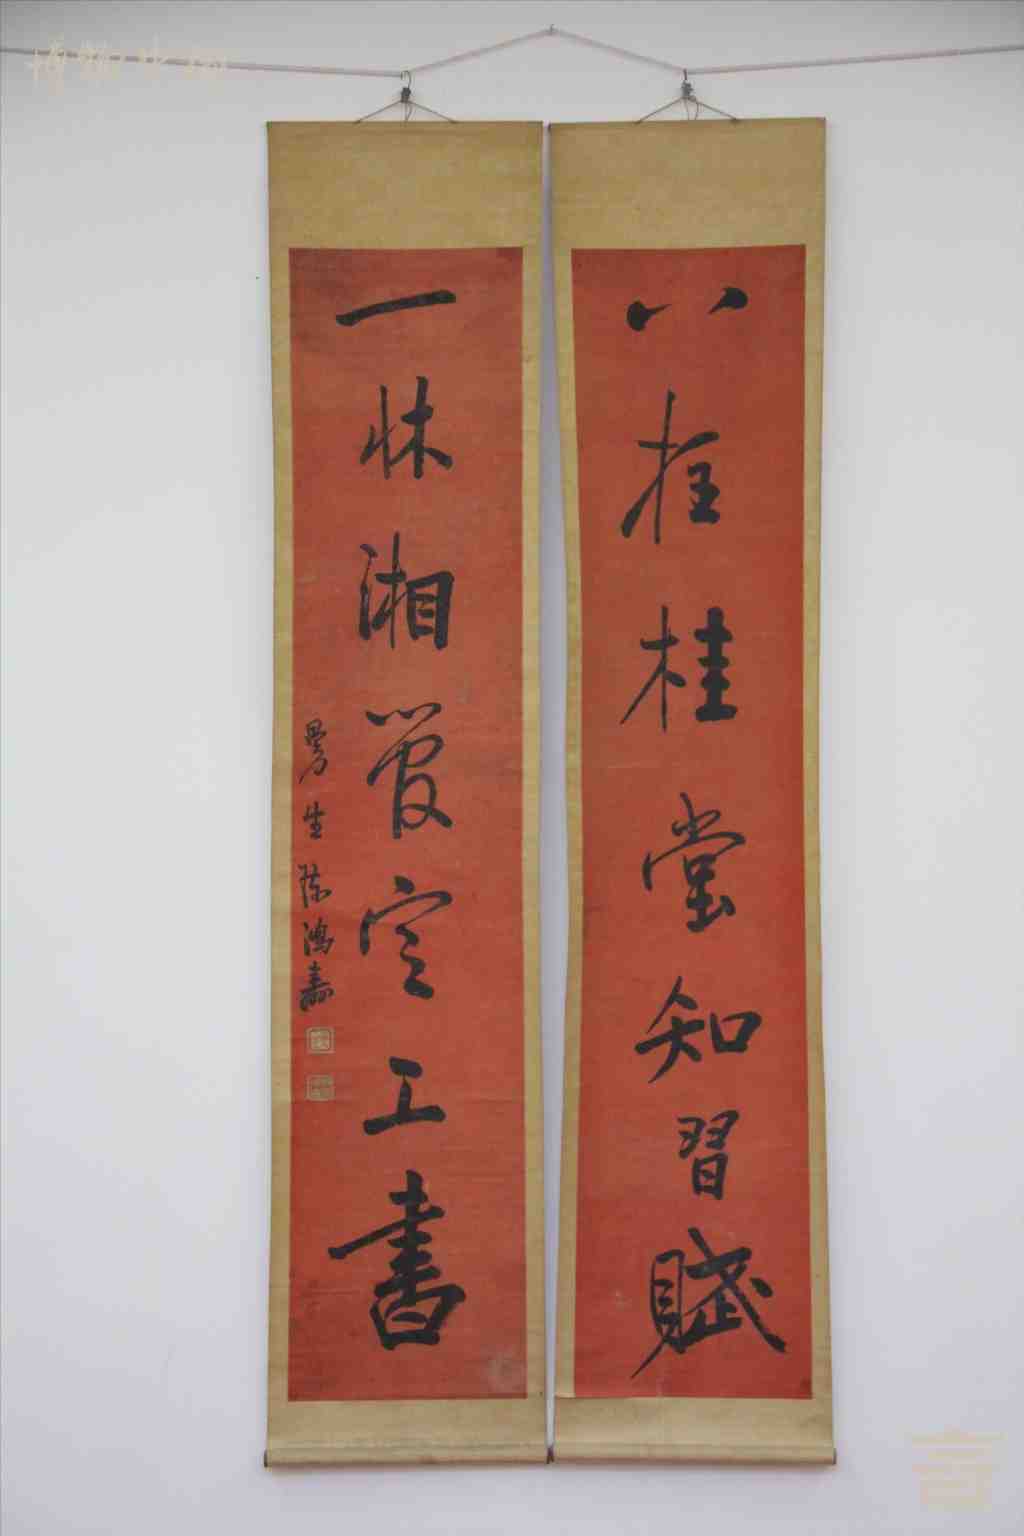 八柱桂堂知習賦
一牀湘管定工書
曼生陳鴻壽